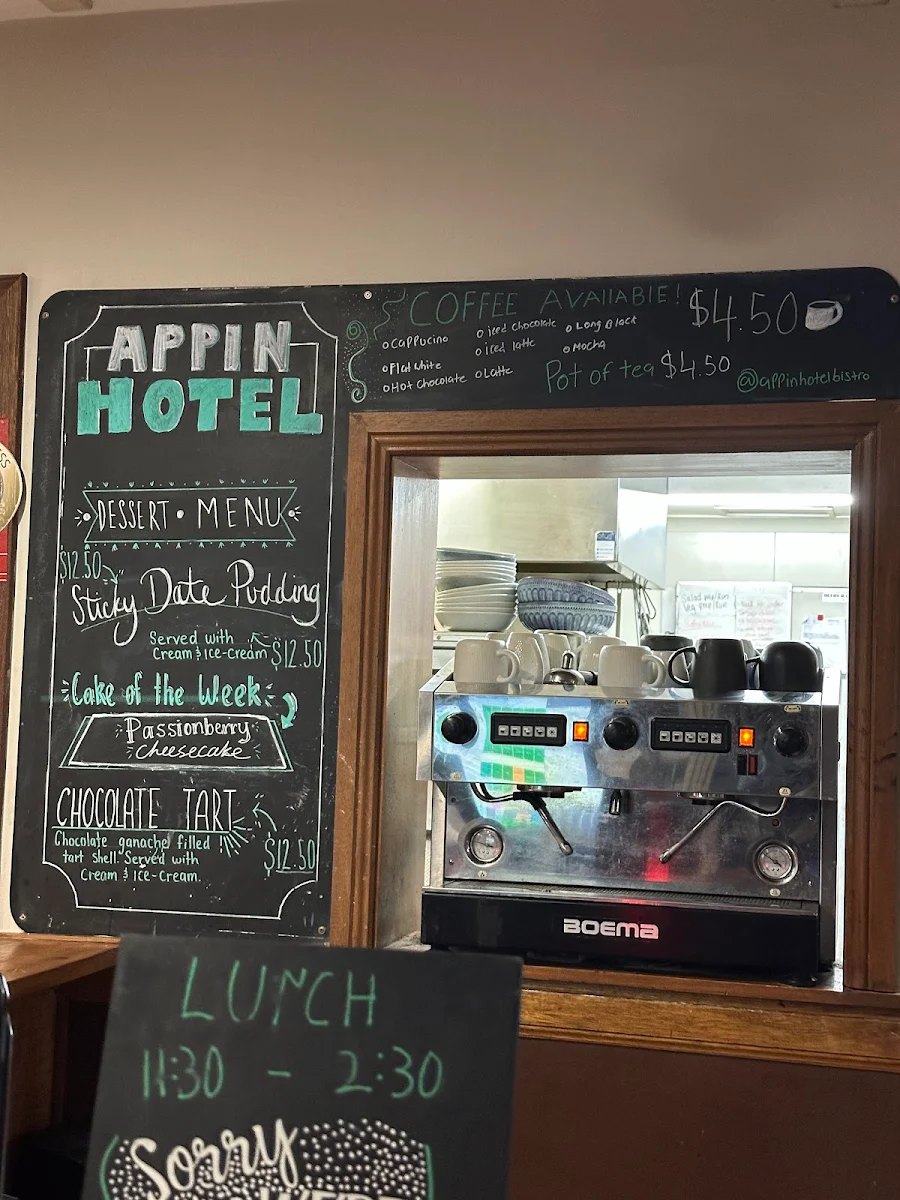 APPIN
HOTEL
DESSERT • MENU
$12.50
Sticky Date Pudding
Served with
Cream & ice-cream $12.50
Cake of the Week
Passionberry
Cheesecake
CHOCOLATE TART
Chocolate ganache filled
tart shell. Served with
Cream & Ice-Cream.
$12.50
COFFEE AVAILABLE! $4.50
o Cappucino
o Flat White
o Hot Chocolate
o iced chocolate
o iced latte
o Latte
o Long Black
o Mocha
Pot of tea $4.50
@appinhotelbistro
BOEMA
LUNCH
11:30 - 2:30
Sorry